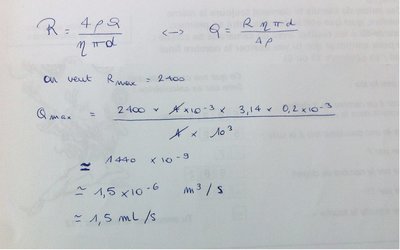 R = 4ρQ / ηπd <-> Q = Rηπd / 4ρ
on veut Rmax = 2400
Qmax = 2400 × 4×10⁻³ × 3,14 × 0,2×10⁻³ / 4 × 10³
≃ 1440 ×10⁻⁹
≃ 1,5 ×10⁻⁶ m³/s
≃ 1,5 mL/s